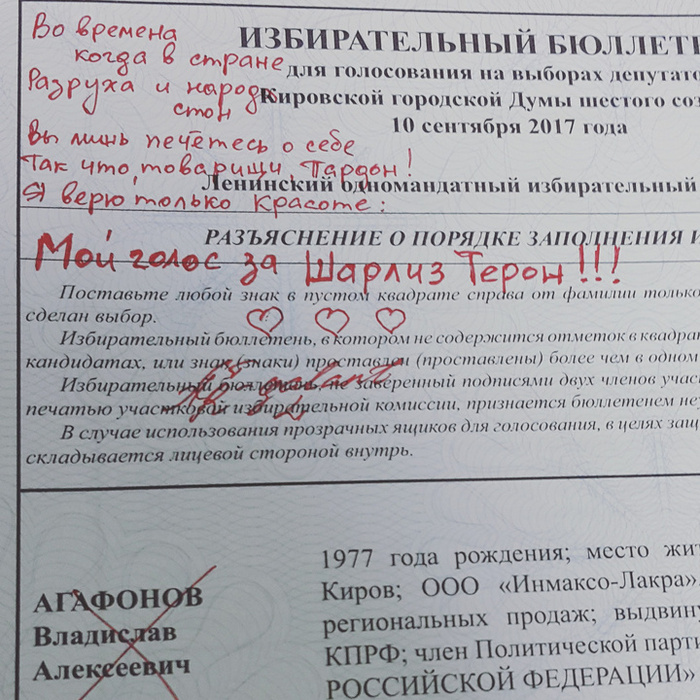 Во времена
когда в стране
Разруха и народа
стон
Вы лишь печётесь о себе
Так что, товарищи, Пардон!
Я верю только Красоте:
Мой голос за Шарлиз Терон!!!
ИЗБИРАТЕЛЬНЫЙ БЮЛЛЕТЕ
для голосования на выборах депутато
Кировской городской Думы шестого соз
10 сентября 2017 года
Ленинский одномандатный избирательный
РАЗЪЯСНЕНИЕ О ПОРЯДКЕ ЗАПОЛНЕНИЯ И
Поставьте любой знак в пустом квадрате справа от фамилии только
сделан выбор.
Избирательный бюллетень, в котором не содержится отметок в квадра
кандидатах, или знак (знаки) проставлен (проставлены) более чем в одном
Избирательный бюллетень, не заверенный подписями двух членов учас
печатью участковой избирательной комиссии, признается бюллетенем не
В случае использования прозрачных ящиков для голосования, в целях защ
складывается лицевой стороной внутрь.
АГАФОНОВ
Владислав
Алексеевич
1977 года рождения; место жит
Киров; ООО «Инмаксо-Лакра».
региональных продаж; выдвину
КПРФ; член Политической парти
РОССИЙСКОЙ ФЕДЕРАЦИИ»